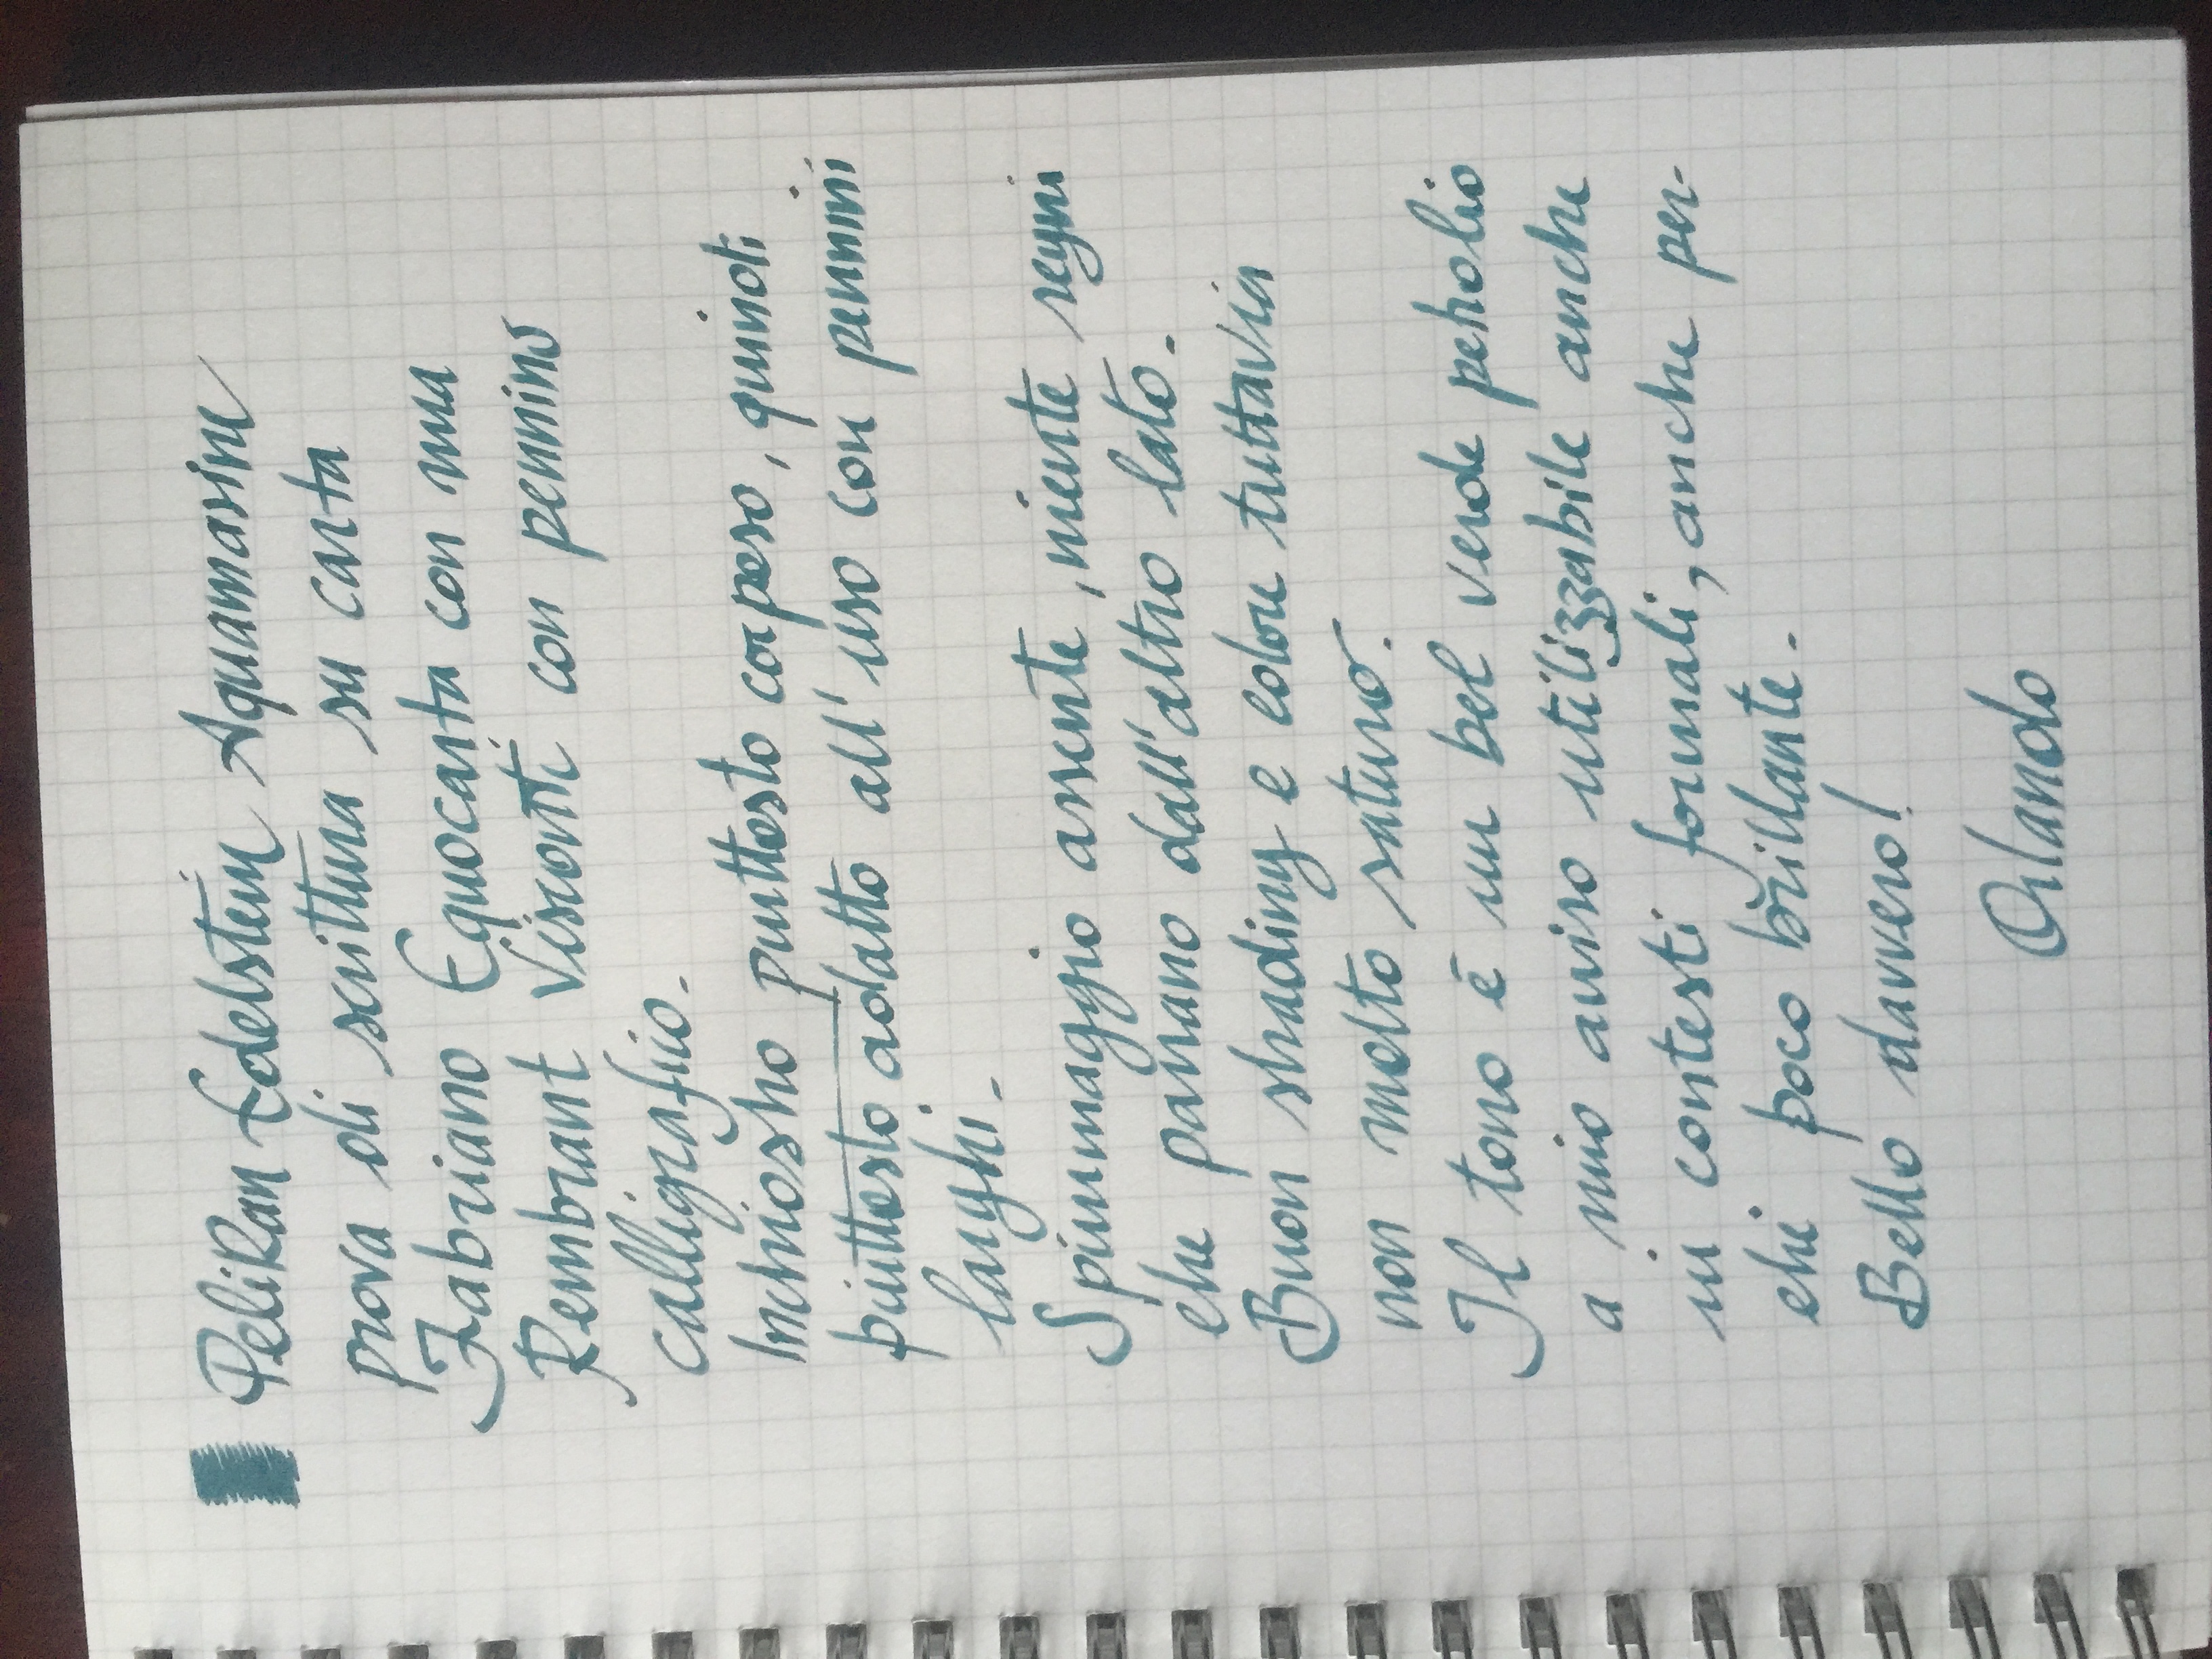 Pelikan Edelstein Aquamarine
prova di scrittura su carta
Fabriano Equocarta con una
Rembrant Visconti con pennino
calligrafico.
Inchiostro piuttosto corposo, quindi
piuttosto adatto all'uso con pennini
larghi.
Spiumaggio assente, niente segni
che passano dall'altro lato.
Buon shading e colore tuttavia
non molto saturo.
Il tono è un bel verde petrolio
a mio avviso utilizzabile anche
in contesti formali, anche per-
chè poco brillante.
Bello davvero!
Orlando